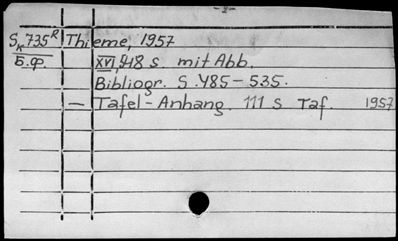 -2-
Sк 735ᴿ Thieme, 1957
Б.ф. XVI, 948 s mit Abb.
Bibliogr. S. 485-535.
— Tafel-Anhang. 111 S Taf. 1957